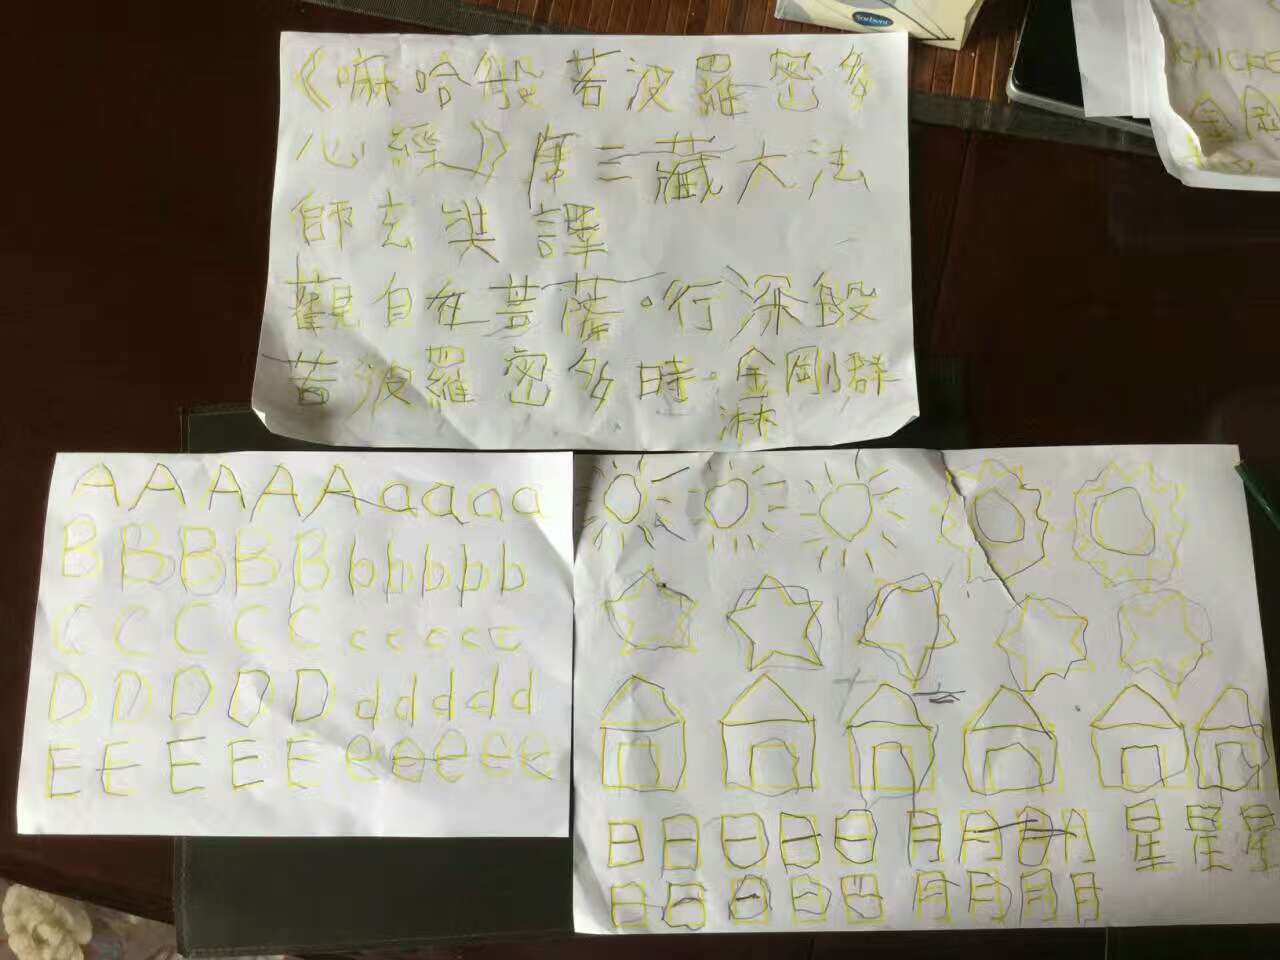 Sorbent
《嘛哈般若波羅密多
心經》唐三藏大法
師玄奘譯
觀自在菩薩·行深般
若波羅密多時·金剛群
淋
CHICKE
金剛
A A A A A a a a a
B B B B B b b b b b
C C C C C c c c c c
D D D D D d d d d d
E E E E E e e e e e
日 日 日 日 日 月 月 月 月 星 星 星
日 日 日 日 日 月 月 月 月